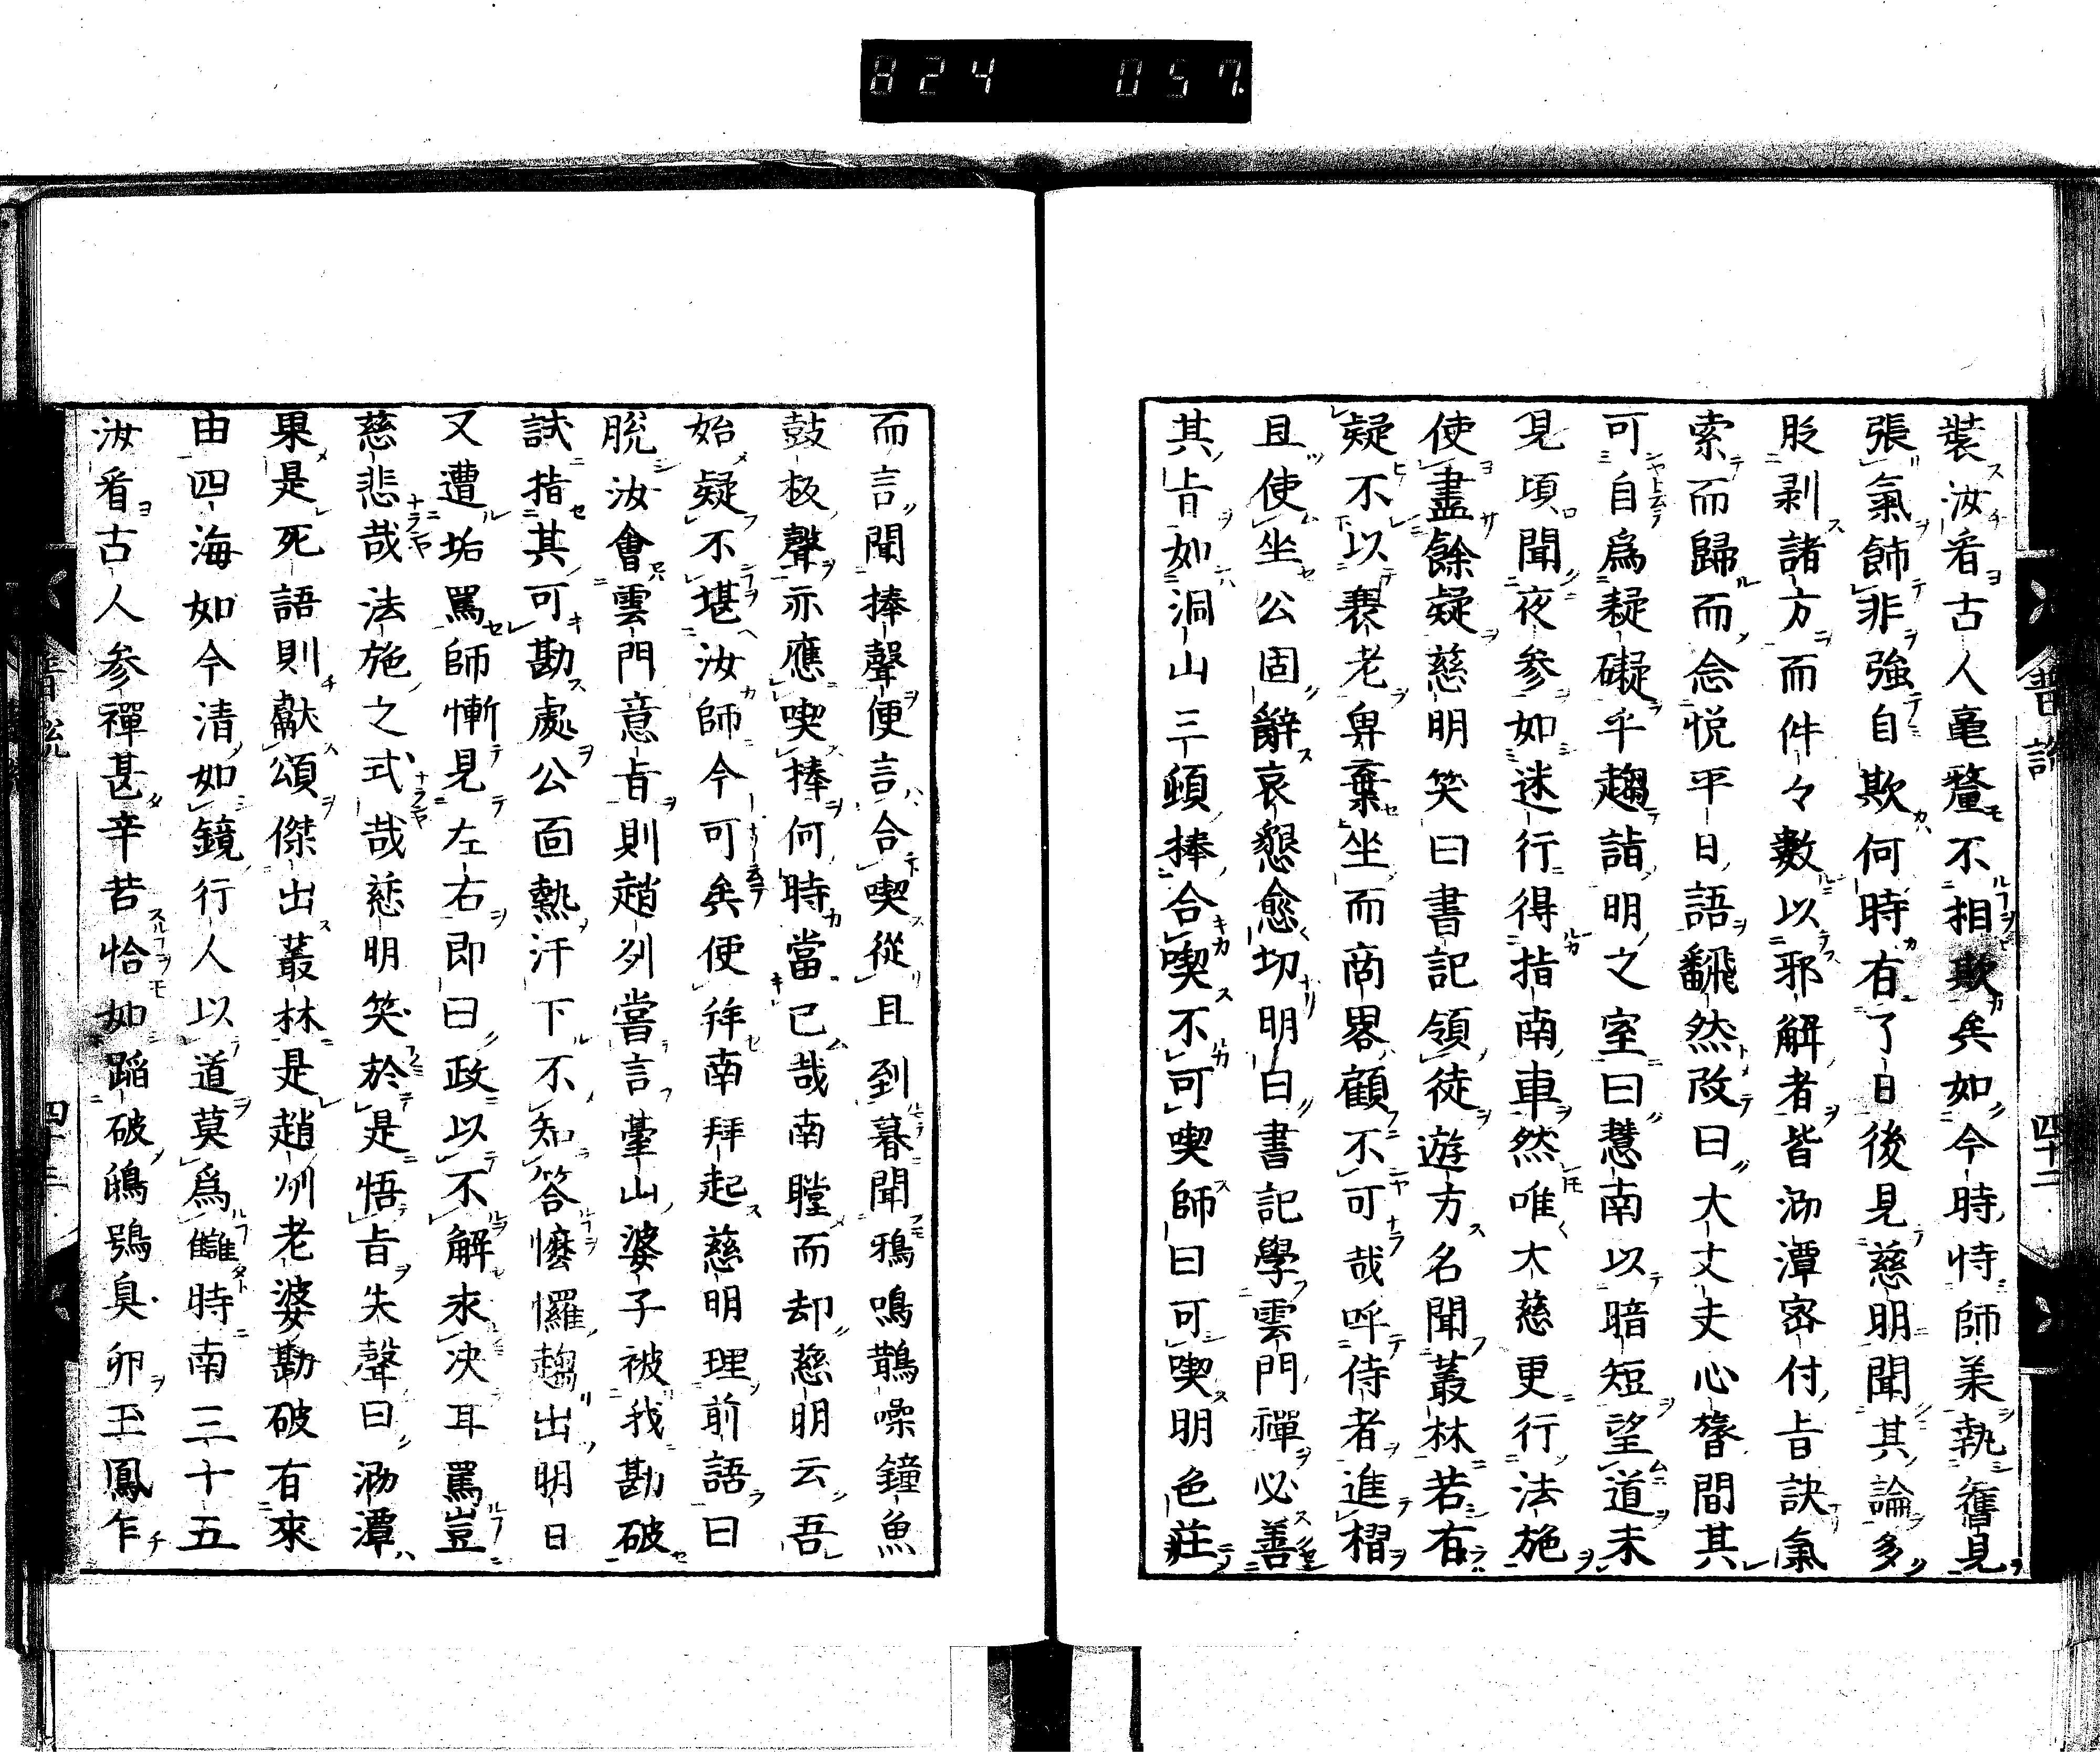 824 057
裝汝看古人毫釐不相欺矣如今時恃師美執舊見
張氣飾非強自欺何時有了日後見慈明聞其論多
貶剥諸方而件々數以邪解者皆泐潭密付旨訣氣
索而歸而念悦平日語翻然改曰大丈夫心膂間其
可自爲疑礙乎趨詣明之室曰慧南以暗短望道未
見頃聞夜參如迷行得指南車然唯大慈更行法施
使盡餘疑慈明笑曰書記領徒遊方名聞叢林若有
疑不以衰老鄙棄坐而商畧顧不可哉呼侍者進榻
且使坐公固辭哀懇愈切明曰書記學雲門禪必善
其旨如洞山三頓捧合喫不可喫師曰可喫明色莊
普說
四十二
而言聞捧聲便言合喫從且到暮聞鴉鳴鵲噪鐘魚
鼓板聲亦應喫捧何時當已哉南瞠而却慈明云吾
始疑不堪汝師今可矣便拜南拜起慈明理前語曰
脱汝會雲門意旨則趙州嘗言臺山婆子被我勘破
試指其可勘處公面熱汗下不知答懡㦬趨出明日
又遭垢罵師慚見左右即曰政以不解求决耳罵豈
慈悲哉法施之式哉慈明笑於是悟旨失聲曰泐潭
果是死語則獻頌傑出叢林是趙州老婆勘破有來
由四海如今清如鏡行人以道莫爲讎時南三十五
汝看古人参禪甚辛苦恰如蹈破鴆鴞臭卵玉鳳乍